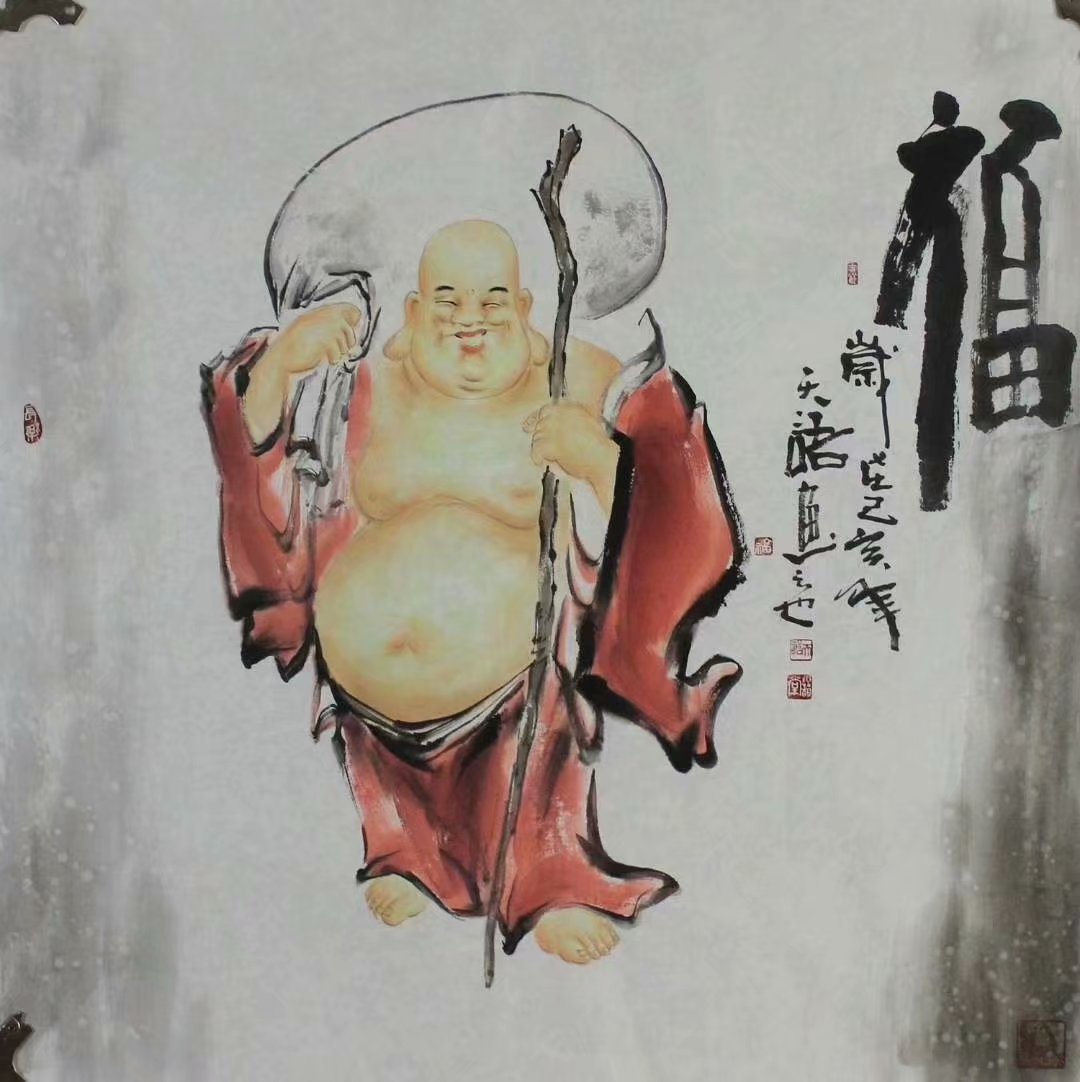 福
歲在己亥年
天語画之也